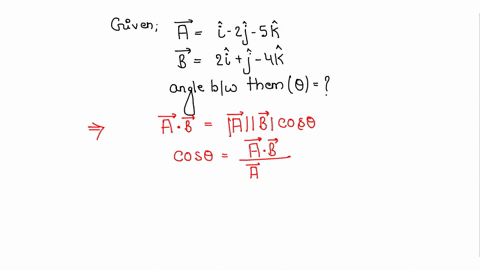 Given; A⃗ = î-2ĵ-5k̂
B⃗ = 2î+ĵ-4k̂
angle b/w them (θ) = ?
⇒ A⃗·B⃗ = |A⃗||B⃗| cosθ
cosθ = A⃗·B⃗ / A⃗